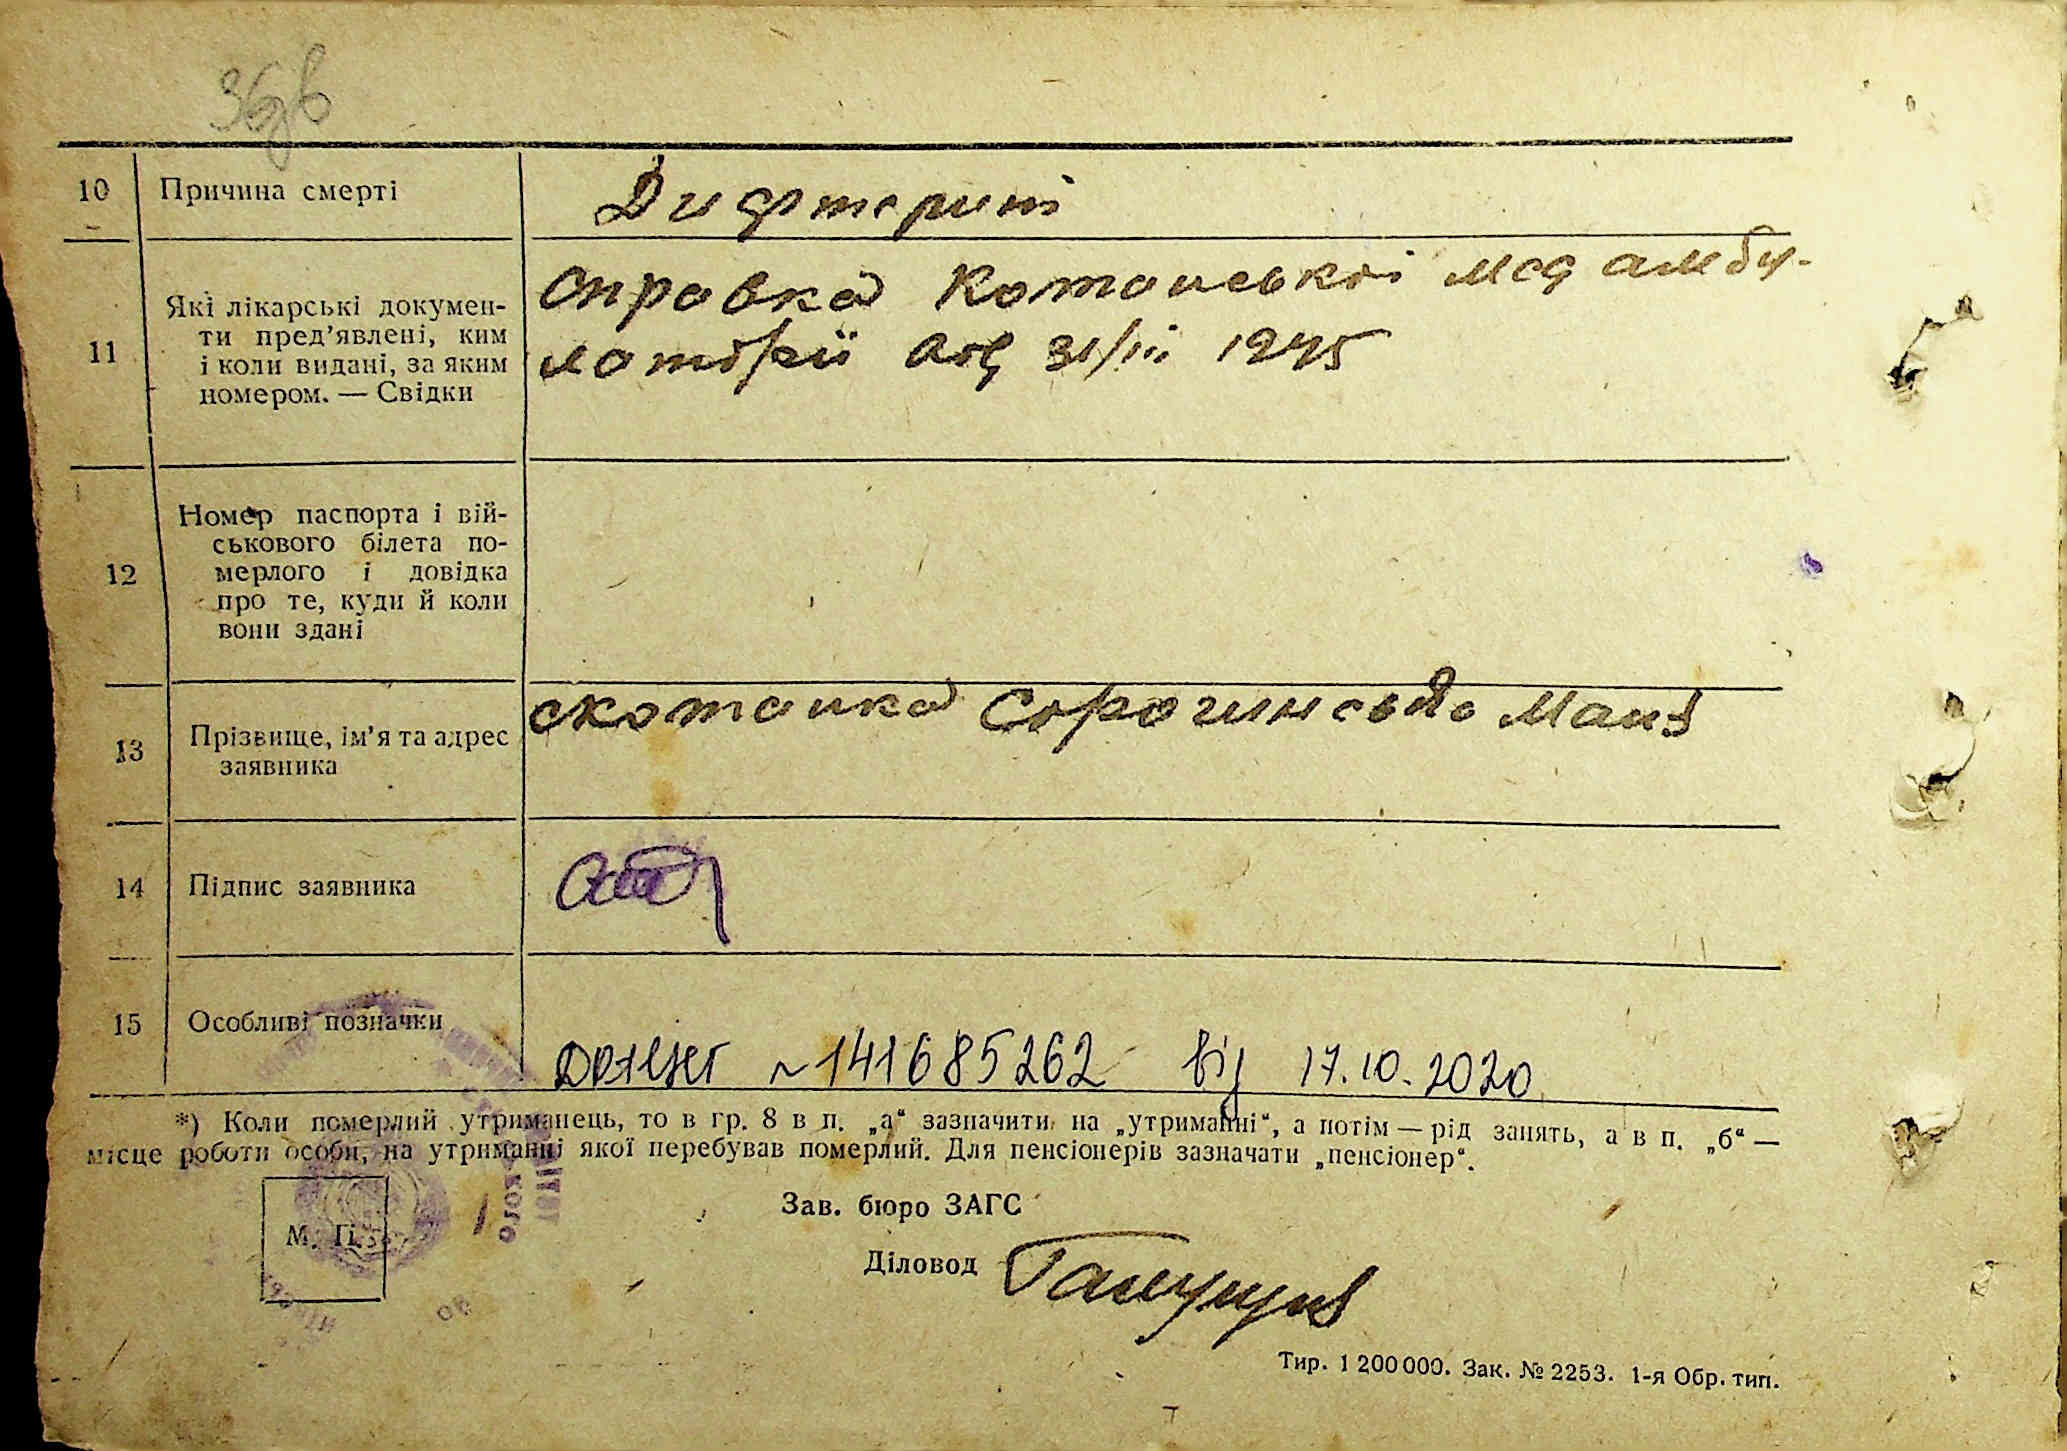 36зв
10 Причина смерті Дифтерит
11 Які лікарські докумен-
ти пред’явлені, ким
і коли видані, за яким
номером. — Свідки
Справка Котанської мед амбу-
латорії від 31/III 1945
12 Номер паспорта і вій-
ськового білета по-
мерлого і довідка
про те, куди й коли
вони здані
13 Прізвище, ім’я та адрес
заявника
Сорочинська
14 Підпис заявника
15 Особливі позначки
Витяг №141685262 від 17.10.2020
*) Коли померлий утриманець, то в гр. 8 в п. „а“ зазначити на „утриманні“, а потім — рід занять, а в п. „б“ —
місце роботи особи, на утриманні якої перебував померлий. Для пенсіонерів зазначати „пенсіонер“.
Зав. бюро ЗАГС
М. П.
Діловод
Тир. 1 200 000. Зак. № 2253. 1-я Обр. тип.